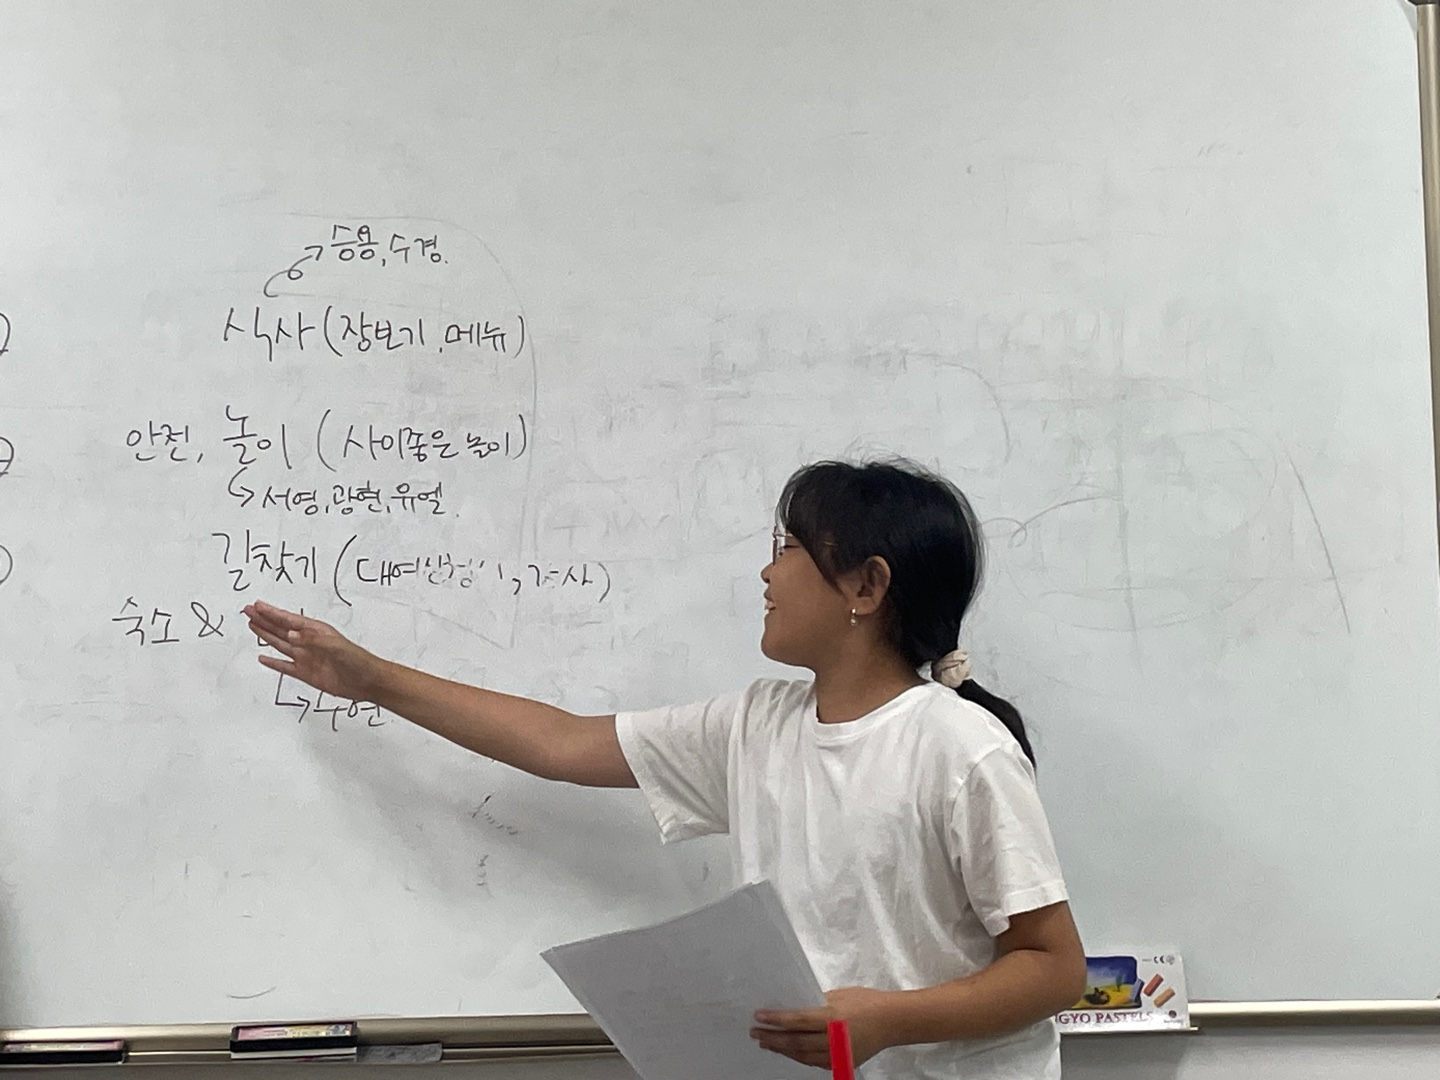 승용, 수경.
식사 (장보기, 메뉴)
안전, 놀이 (사이좋은 놀이)
서영, 광현, 유엘.
길찾기 (
숙소 &
GYO PASTELS